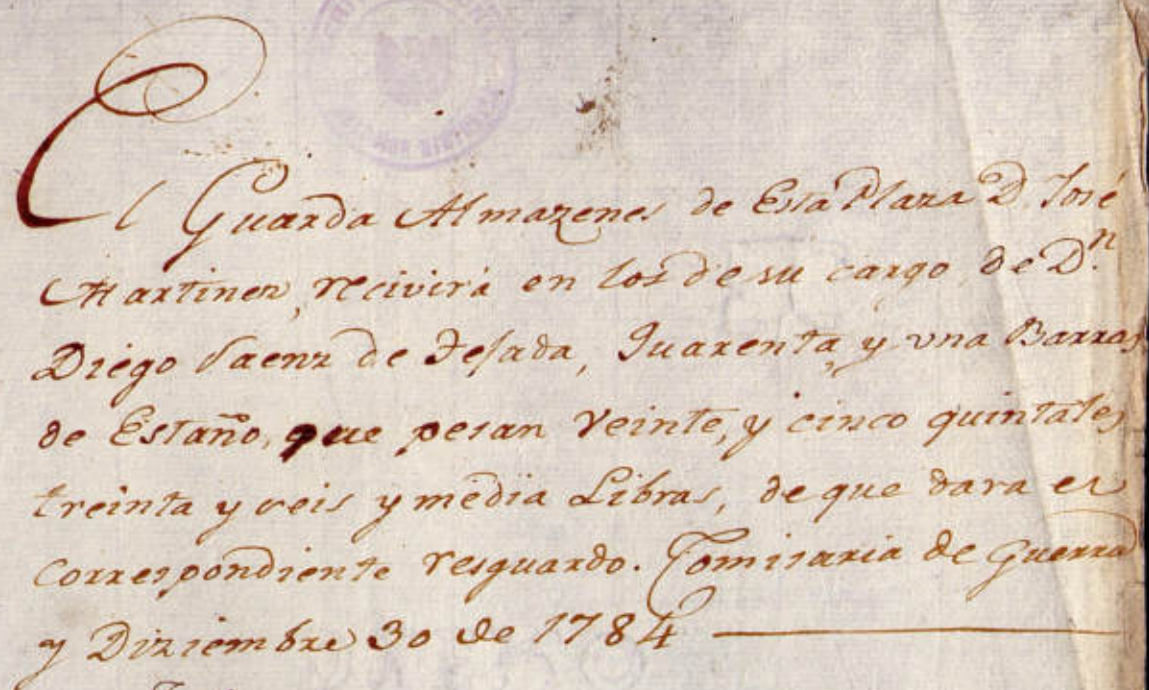 El Guarda Almazenes de Esta Plaza D. José
Martinez, recivirá en los de su cargo, de D.n
Diego Saenz de Tejada, Quarenta, y una Barras
de Estaño, que pesan Veinte, y cinco quintales
treinta y seis y media Libras, de que dara el
correspondiente resguardo. Comisaria de Guerra
y Diziembre 30 de 1784